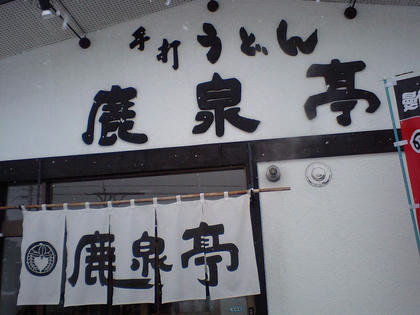 手打うどん
鹿泉亭
鹿泉亭